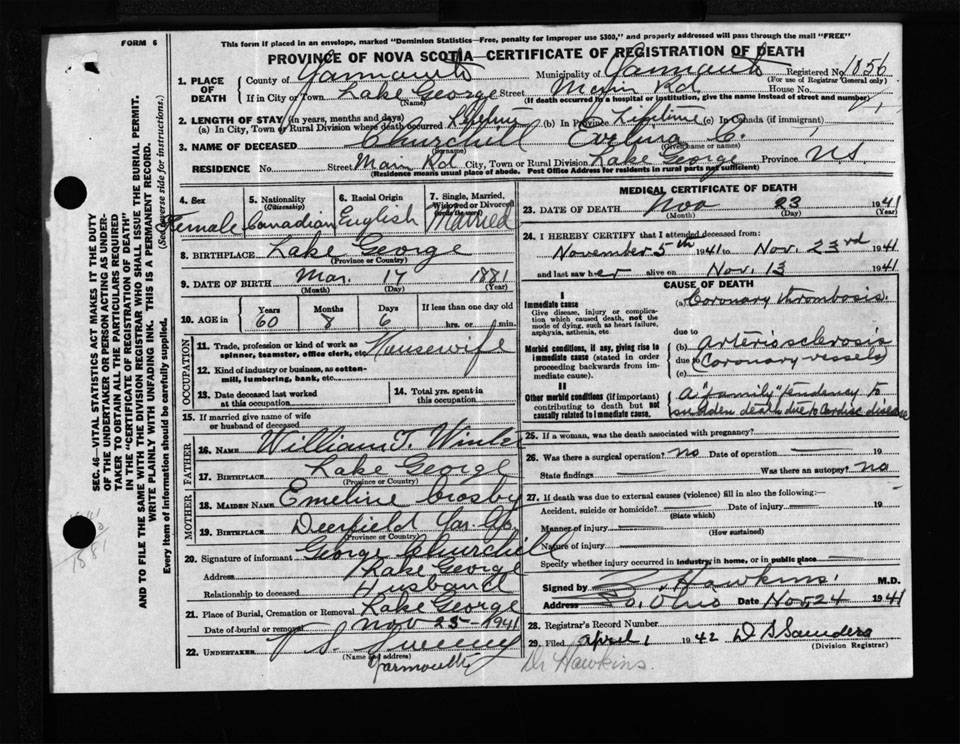 FORM 6
This form if placed in an envelope, marked "Dominion Statistics—Free, penalty for improper use $300," and properly addressed will pass through the mail "FREE"
PROVINCE OF NOVA SCOTIA—CERTIFICATE OF REGISTRATION OF DEATH
1. PLACE OF DEATH
County of Yarmouth Municipality of Yarmouth Registered No. 1856
(For use of Registrar General only)
If in City or Town Lake George Street Main Rd. House No.
(Name) (If death occurred in a hospital or institution, give the name instead of street and number)
2. LENGTH OF STAY (in years, months and days)
(a) In City, Town or Rural Division where death occurred Lifetime (b) In Province Lifetime (c) In Canada (if immigrant)
3. NAME OF DECEASED Churchill Evelina C.
(Surname) (Given name or names)
RESIDENCE No. Street Main Rd City, Town or Rural Division Lake George Province N.S.
(Residence means usual place of abode. Post Office Address for residents in rural parts not sufficient)
4. Sex Female
5. Nationality (Citizenship) Canadian
6. Racial Origin English
7. Single, Married, Widowed or Divorced Married
8. BIRTHPLACE Lake George
(Province or Country)
9. DATE OF BIRTH Mar. 17 1881
(Month) (Day) (Year)
10. AGE in Years 60 Months 8 Days 6 If less than one day old hrs. or min.
OCCUPATION
11. Trade, profession or kind of work as spinner, teamster, office clerk, etc. Housewife
12. Kind of industry or business, as cotton-mill, lumbering, bank, etc.
13. Date deceased last worked at this occupation
14. Total yrs. spent in this occupation
15. If married give name of wife or husband of deceased
FATHER
16. NAME William T. Winter
17. BIRTHPLACE Lake George
(Province or Country)
MOTHER
18. MAIDEN NAME Emeline Crosby
19. BIRTHPLACE Deerfield Yar. Co.
(Province or Country)
20. Signature of informant George Churchill
Address Lake George
Relationship to deceased Husband
21. Place of Burial, Cremation or Removal Lake George
Date of burial or removal Nov 25 1941
22. UNDERTAKER V. S. Sweeney
(Name and address)
Yarmouth
MEDICAL CERTIFICATE OF DEATH
23. DATE OF DEATH Nov 23 1941
(Month) (Day) (Year)
24. I HEREBY CERTIFY that I attended deceased from:
November 5th 1941 to Nov. 23rd 1941
and last saw her alive on Nov. 13 1941
CAUSE OF DEATH
I
Immediate cause
Give disease, injury or complication which caused death, not the mode of dying, such as heart failure, asphyxia, asthenia, etc
(a) Coronary thrombosis.
due to
Morbid conditions, if any, giving rise to immediate cause (stated in order proceeding backwards from immediate cause).
(b) arteriosclerosis
due to (coronary vessels)
(c)
II
Other morbid conditions (if important) contributing to death but not causally related to immediate cause.
A "family" tendency to sudden death due to Cardiac disease
25. If a woman, was the death associated with pregnancy?
26. Was there a surgical operation? no Date of operation 19
State findings Was there an autopsy? no
27. If death was due to external causes (violence) fill in also the following:—
Accident, suicide or homicide? Date of injury 19
(State which)
Manner of injury
(How sustained)
Nature of injury
Specify whether injury occurred in industry, in home, or in public place
Signed by Hawkins M.D.
Address So. Ohio Date Nov. 24 1941
28. Registrar's Record Number
29. Filed April 1 1942 D S Saunders
(Division Registrar)
Dr Hawkins.
SEC. 46—VITAL STATISTICS ACT MAKES IT THE DUTY
OF THE UNDERTAKER OR PERSON ACTING AS UNDER-
TAKER TO OBTAIN ALL THE PARTICULARS REQUIRED
IN THE "CERTIFICATE OF REGISTRATION OF DEATH"
AND TO FILE THE SAME WITH THE DIVISION REGISTRAR WHO SHALL ISSUE THE BURIAL PERMIT.
WRITE PLAINLY WITH UNFADING INK. THIS IS A PERMANENT RECORD.
Every item of information should be carefully supplied. (See reverse side for instructions.)
1881